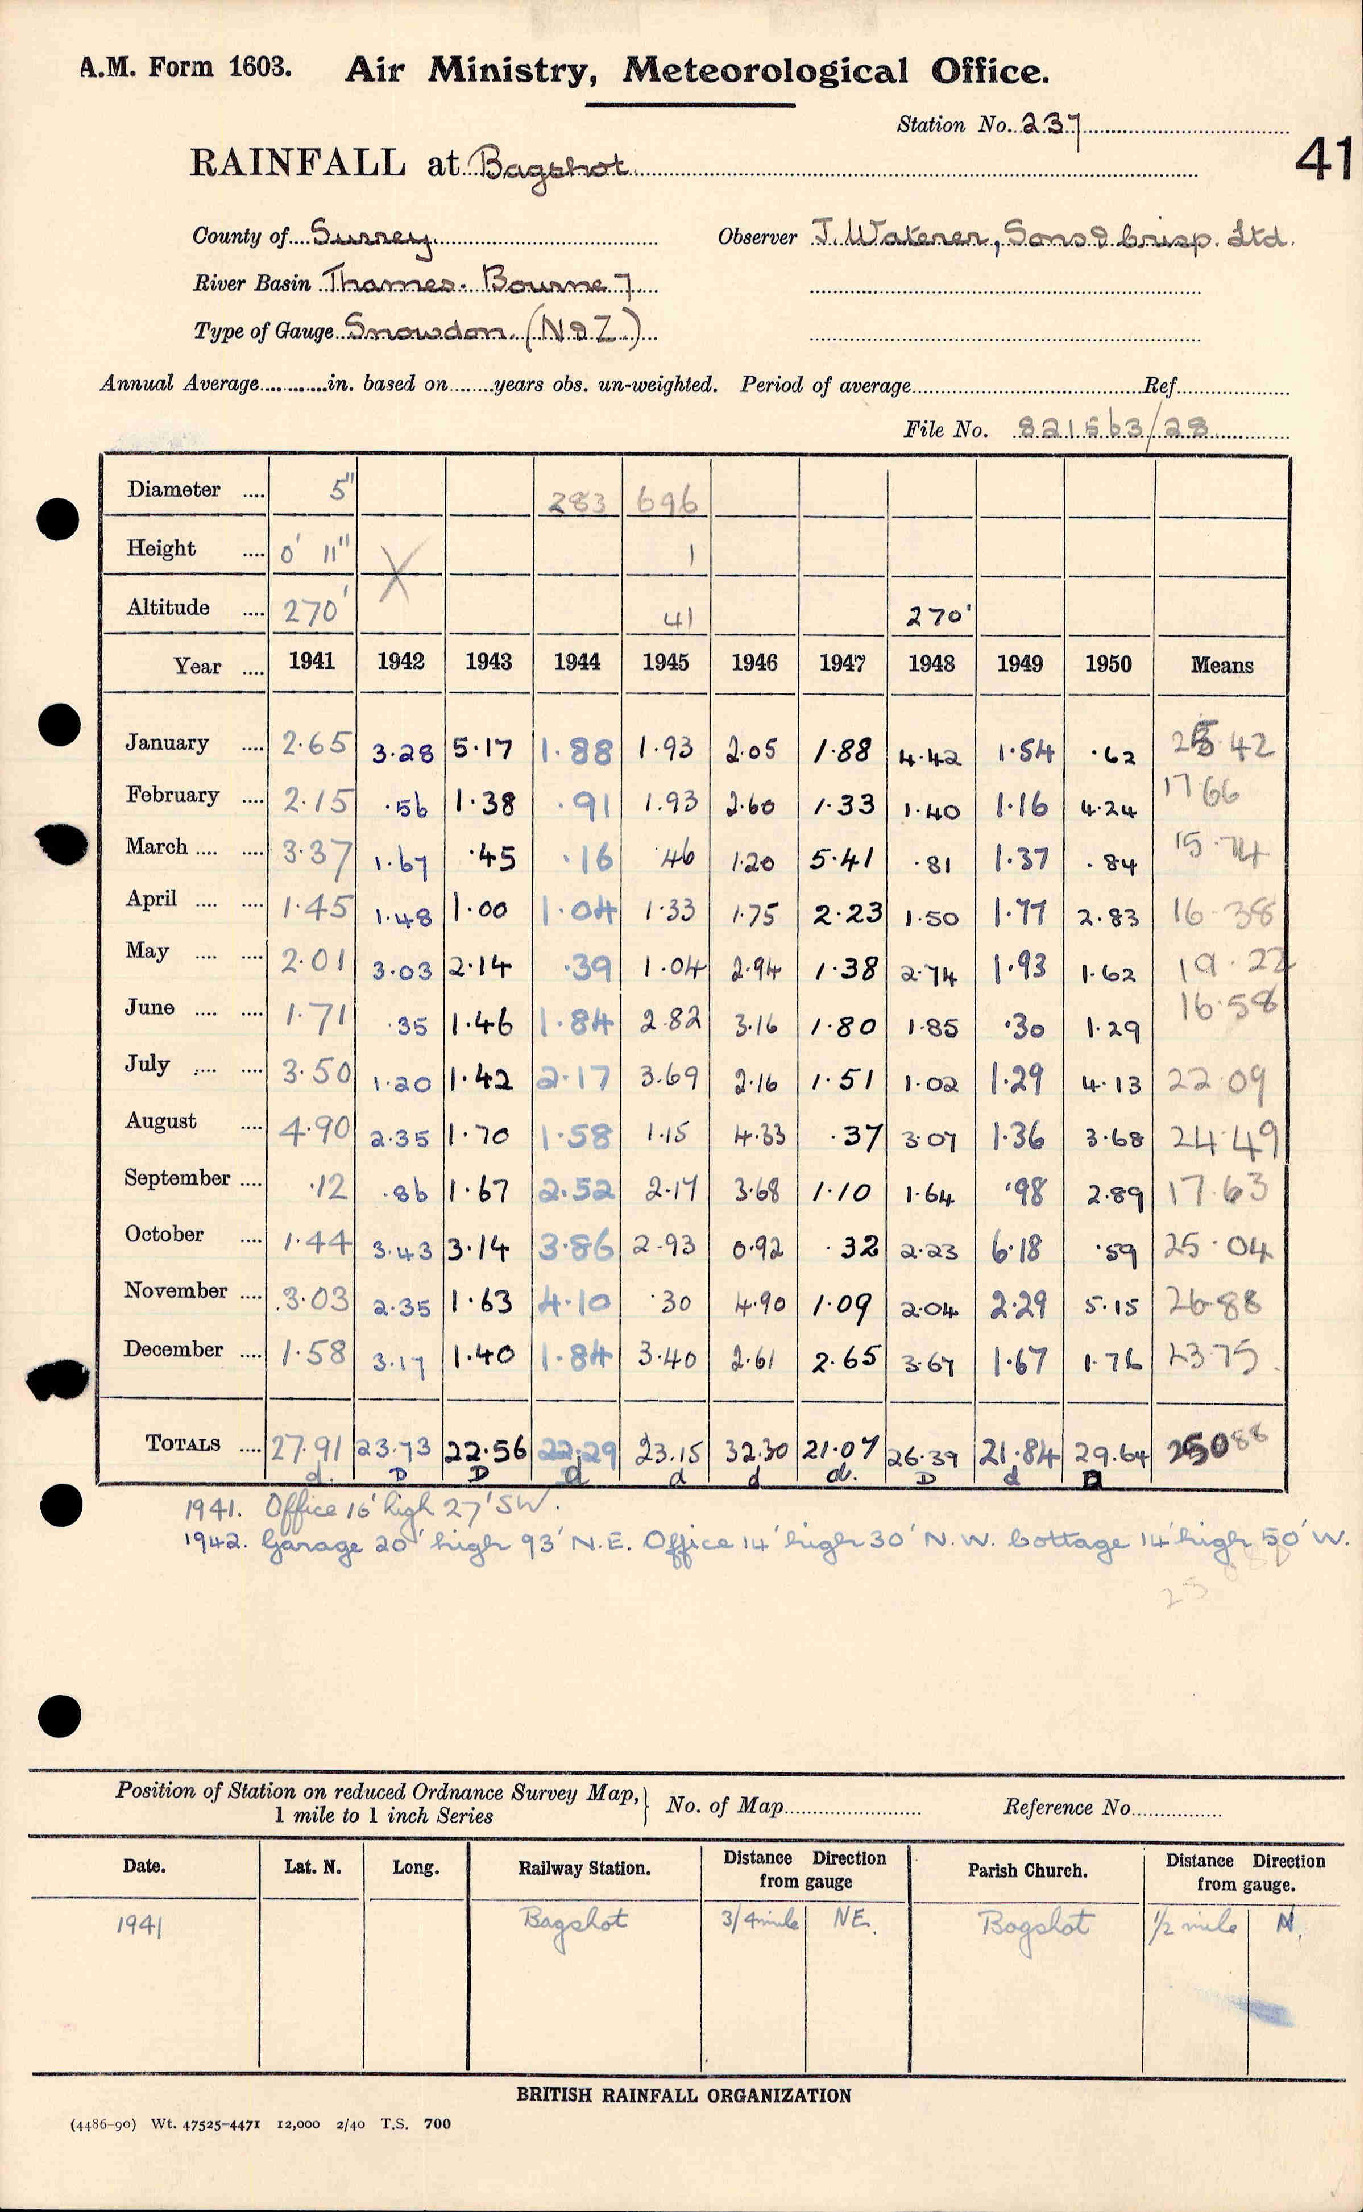 A.M. Form 1603. Air Ministry, Meteorological Office.
Station No. 237
41
RAINFALL at Bagshot
County of Surrey Observer J. Waterer, Sons & Crisp. Ltd.
River Basin Thames. Bourne 7
Type of Gauge Snowdon. (N & Z.)
Annual Average in. based on years obs. un-weighted. Period of average Ref.
File No. 821563/28
Diameter 5" 283 696
Height 0' 11" X 1
Altitude 270' 41 270'
Year 1941 1942 1943 1944 1945 1946 1947 1948 1949 1950 Means
January 2.65 3.28 5.17 1.88 1.93 2.05 1.88 4.42 1.54 .62 25.42
February 2.15 .56 1.38 .91 1.93 2.60 1.33 1.40 1.16 4.24 17 66
March 3.37 1.67 .45 .16 .46 1.20 5.41 .81 1.37 .84 15.74
April 1.45 1.48 1.00 1.04 1.33 1.75 2.23 1.50 1.77 2.83 16.38
May 2.01 3.03 2.14 .39 1.04 2.94 1.38 2.74 1.93 1.62 19.22
June 1.71 .35 1.46 1.84 2.82 3.16 1.80 1.85 .30 1.29 16.58
July 3.50 1.20 1.42 2.17 3.69 2.16 1.51 1.02 1.29 4.13 22 09
August 4.90 2.35 1.70 1.58 1.15 4.33 .37 3.07 1.36 3.68 24.49
September .12 .86 1.67 2.52 2.17 3.68 1.10 1.64 .98 2.89 17.63
October 1.44 3.43 3.14 3.86 2.93 0.92 .32 2.23 6.18 .59 25.04
November 3.03 2.35 1.63 4.10 .30 4.90 1.09 2.04 2.29 5.15 26.88
December 1.58 3.17 1.40 1.84 3.40 2.61 2.65 3.67 1.67 1.76 23.75
TOTALS 27.91 23.73 22.56 22.29 23.15 32.30 21.07 26.39 21.84 29.64 250 88
d. D D d d d d. D d D
1941. Office 16' high 27' SW.
1942. Garage 20' high 93' N.E. Office 14' high 30' N.W. Cottage 14' high 50' W.
Position of Station on reduced Ordnance Survey Map, 1 mile to 1 inch Series No. of Map Reference No.
Date. Lat. N. Long. Railway Station. Distance Direction from gauge Parish Church. Distance Direction from gauge.
1941 Bagshot 3/4 mile NE. Bagshot 1/2 mile N.
BRITISH RAINFALL ORGANIZATION
(4486-90) Wt. 47525-4471 12,000 2/40 T.S. 700